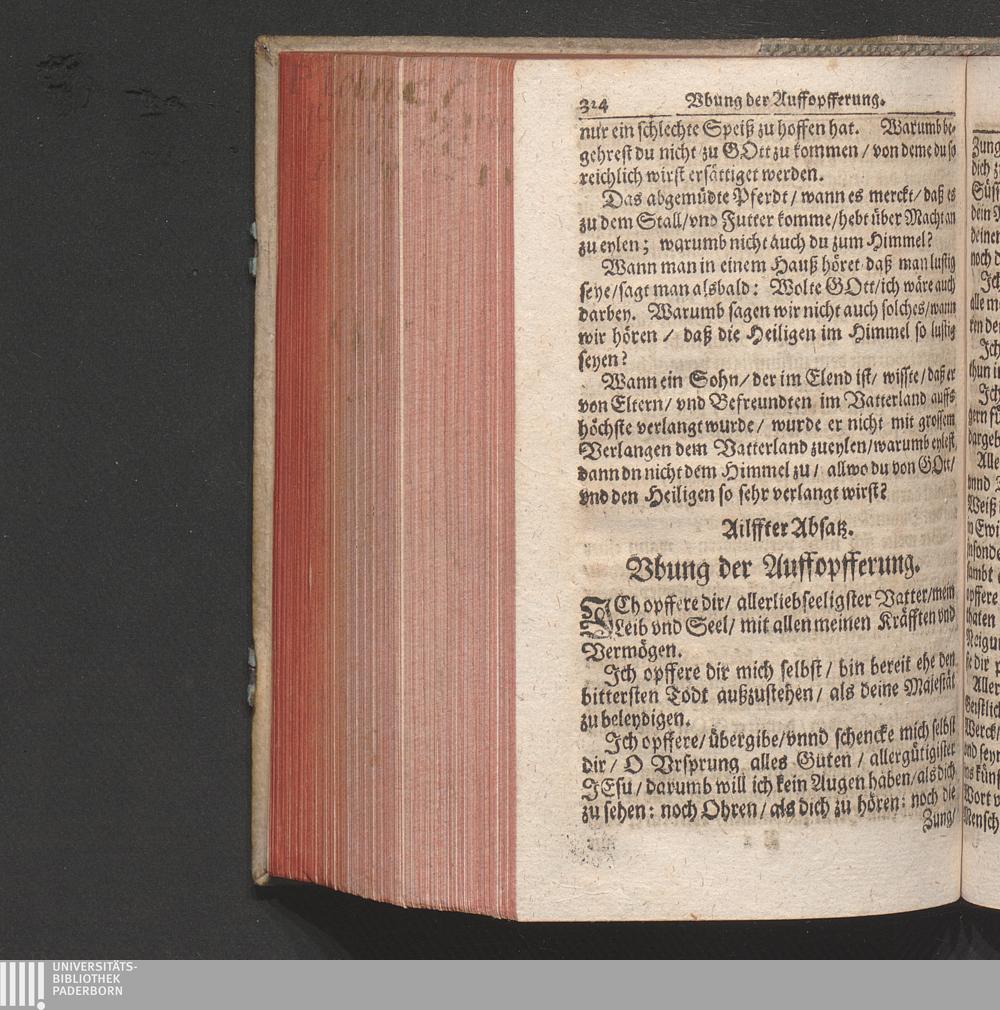 324 Vbung der Auffopfferung.
nur ein schlechte Speiß zu hoffen hat. Warumb be-
gehrest du nicht zu GOtt zu kommen / von deme du so
reichlich wirst ersättiget werden.
Das abgemüdte Pferdt / wann es merckt / daß es
zu dem Stall / vnd Futter komme / hebt über Macht an
zu eylen; warumb nicht auch du zum Himmel?
Wann man in einem Hauß höret daß man lustig
seye / sagt man alsbald: Wolte GOtt / ich wäre auch
darbey. Warumb sagen wir nicht auch solches / wann
wir hören / daß die Heiligen im Himmel so lustig
seyen?
Wann ein Sohn / der im Elend ist / wisste / daß er
von Eltern / vnd Befreundten im Vatterland auffs
höchste verlangt wurde / wurde er nicht mit grossem
Verlangen dem Vatterland zueylen / warumb eylest
dann dn nicht dem Himmel zu / allwo du von GOtt /
vnd den Heiligen so sehr verlangt wirst?
Ailffter Absatz.
Vbung der Auffopfferung.
ICh opffere dir / allerliebseeligster Vatter / mein
Leib vnd Seel / mit allen meinen Kräfften vnd
Vermögen.
Ich opffere dir mich selbst / bin bereit ehe den
bittersten Todt außzustehen / als deine Majestät
zu beleydigen.
Ich opffere / übergibe / vnnd schencke mich selbst
dir / O Vrsprung alles Guten / allergütigister
JEsu / darumb will ich kein Augen haben / als dich
zu sehen: noch Ohren / als dich zu hören: noch die
Zung /
UNIVERSITÄTS-
BIBLIOTHEK
PADERBORN